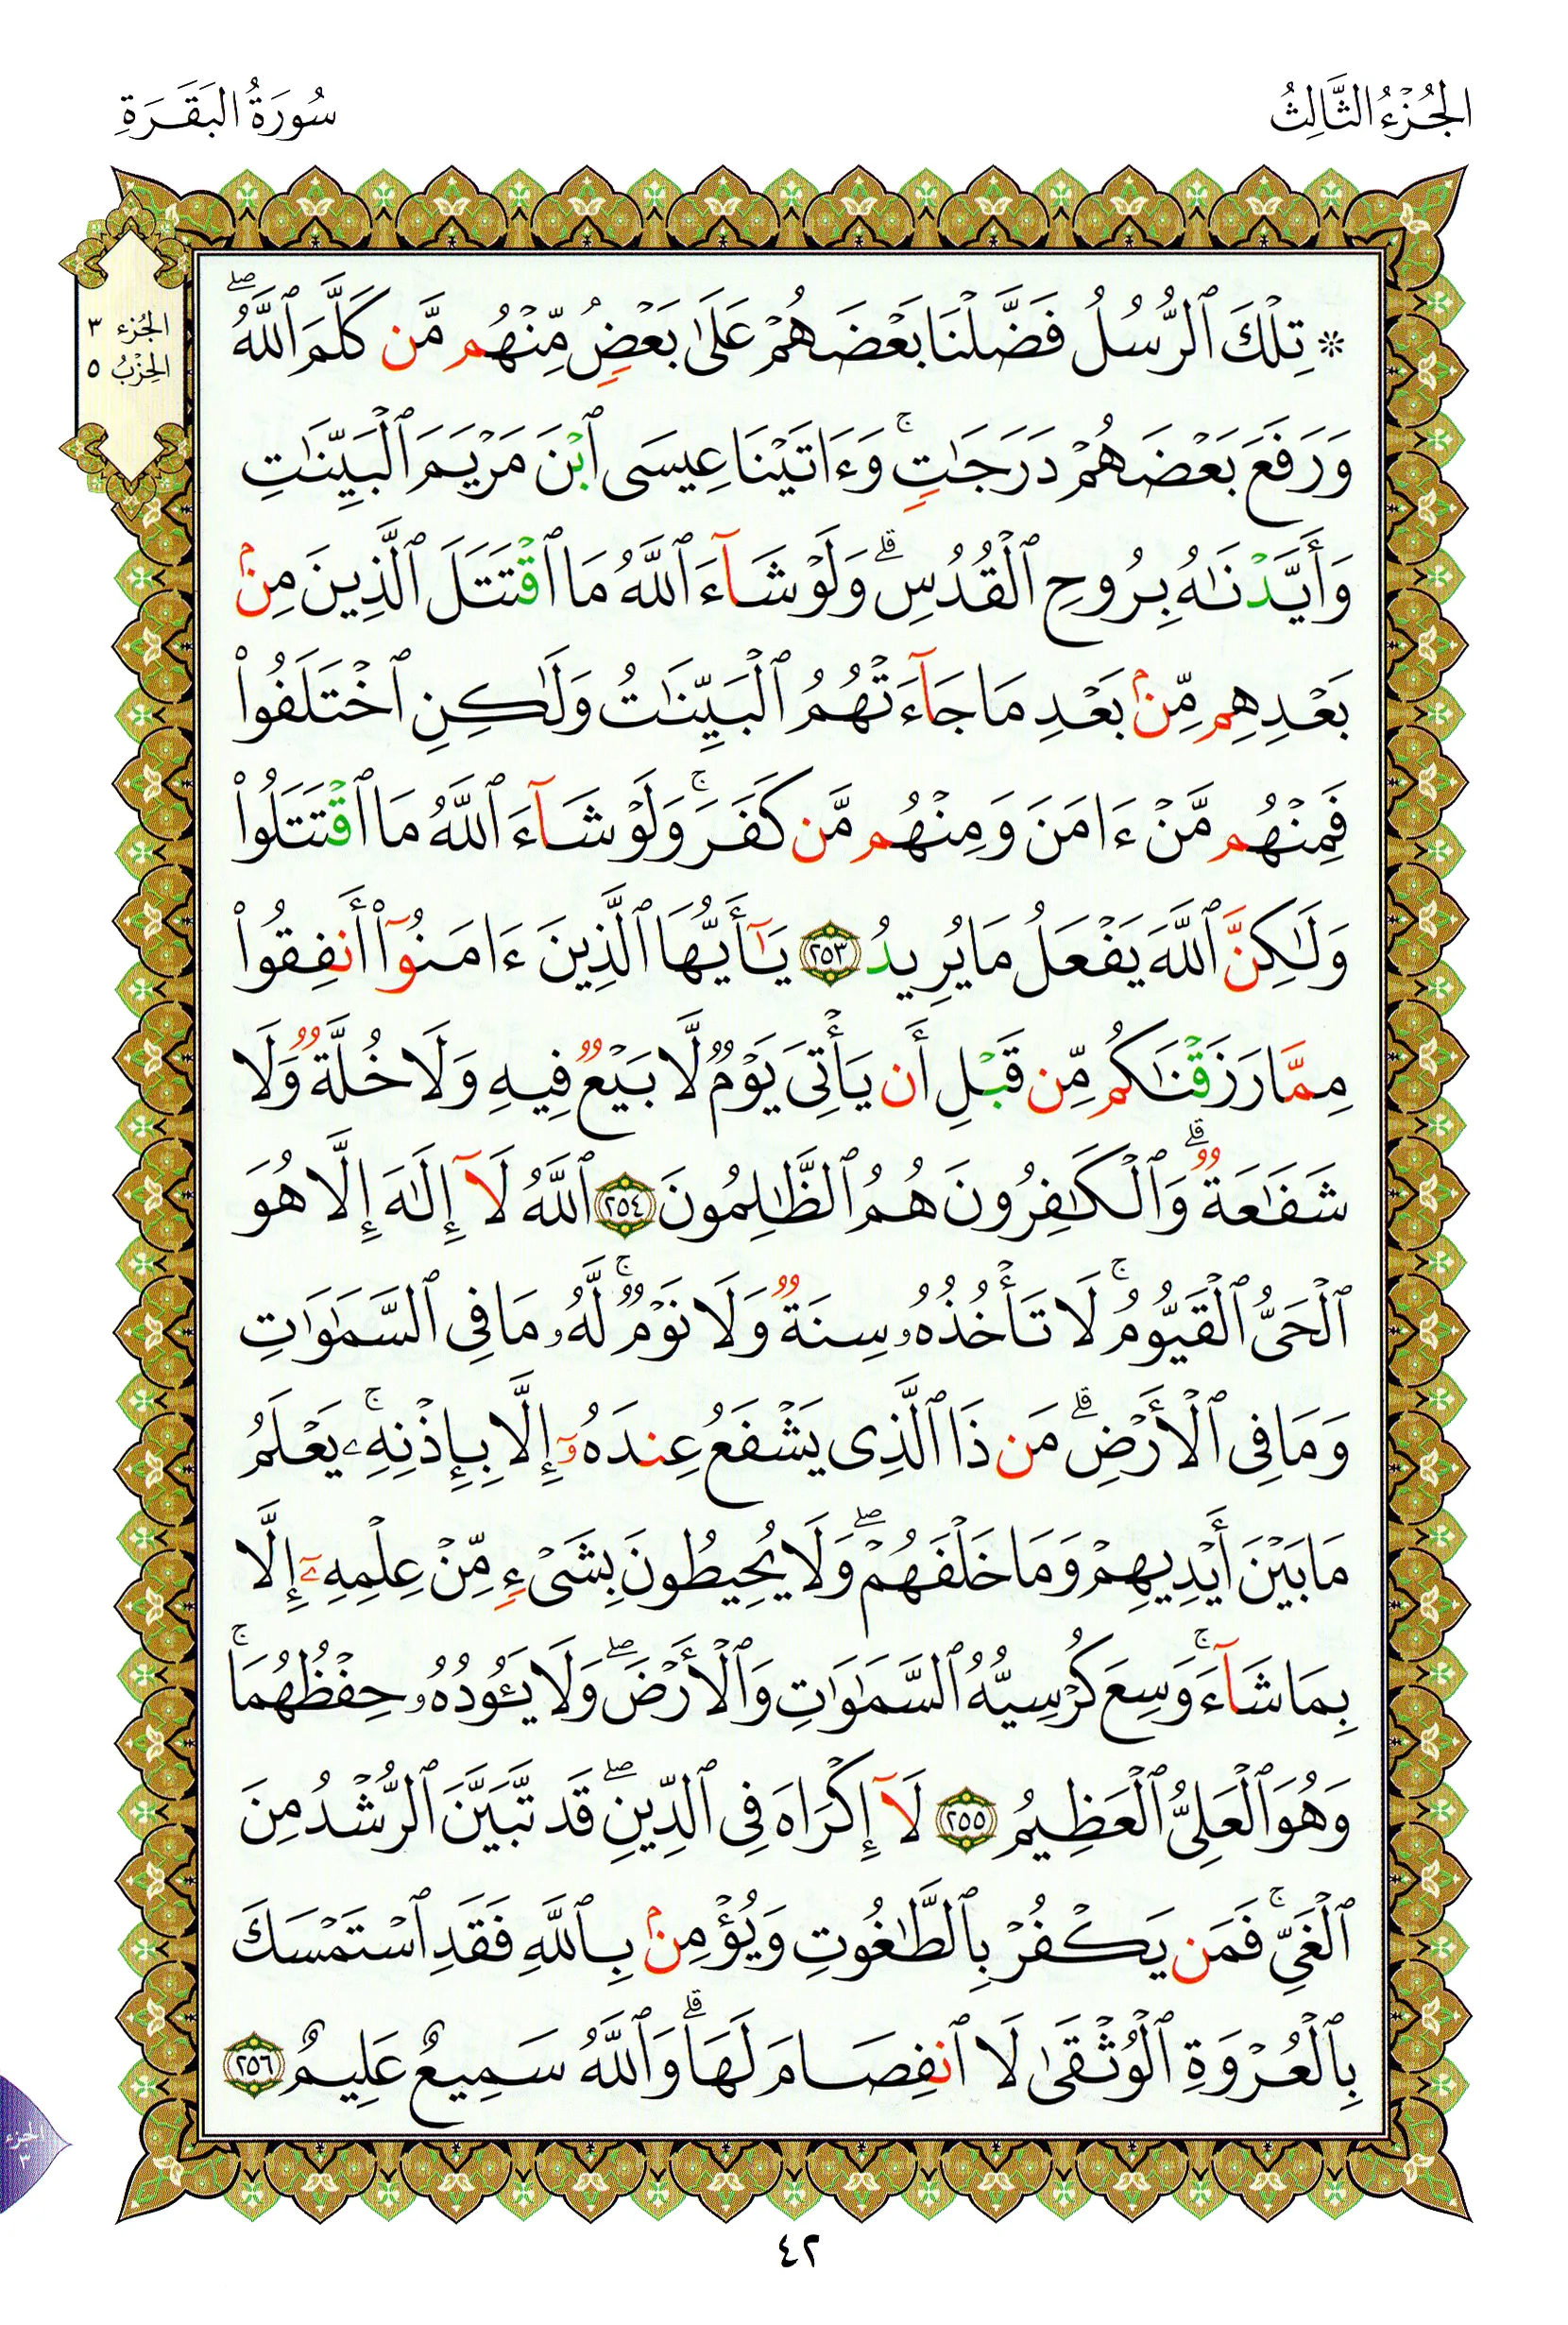 الجُزْءُ الثَّالِثُ
سُورَةُ البَقَرَةِ
الجُزء ٣
الحِزْبُ ٥
۞ تِلْكَ ٱلرُّسُلُ فَضَّلْنَا بَعْضَهُمْ عَلَىٰ بَعْضٍۢ مِّنْهُم مَّن كَلَّمَ ٱللَّهُ ۖ
وَرَفَعَ بَعْضَهُمْ دَرَجَٰتٍۢ ۚ وَءَاتَيْنَا عِيسَى ٱبْنَ مَرْيَمَ ٱلْبَيِّنَٰتِ
وَأَيَّدْنَٰهُ بِرُوحِ ٱلْقُدُسِ ۗ وَلَوْ شَآءَ ٱللَّهُ مَا ٱقْتَتَلَ ٱلَّذِينَ مِنۢ
بَعْدِهِم مِّنۢ بَعْدِ مَا جَآءَتْهُمُ ٱلْبَيِّنَٰتُ وَلَٰكِنِ ٱخْتَلَفُوا۟
فَمِنْهُم مَّنْ ءَامَنَ وَمِنْهُم مَّن كَفَرَ ۚ وَلَوْ شَآءَ ٱللَّهُ مَا ٱقْتَتَلُوا۟
وَلَٰكِنَّ ٱللَّهَ يَفْعَلُ مَا يُرِيدُ ٢٥٣ يَٰٓأَيُّهَا ٱلَّذِينَ ءَامَنُوٓا۟ أَنفِقُوا۟
مِمَّا رَزَقْنَٰكُم مِّن قَبْلِ أَن يَأْتِىَ يَوْمٌۭ لَّا بَيْعٌۭ فِيهِ وَلَا خُلَّةٌۭ وَلَا
شَفَٰعَةٌۭ ۗ وَٱلْكَٰفِرُونَ هُمُ ٱلظَّٰلِمُونَ ٢٥٤ ٱللَّهُ لَآ إِلَٰهَ إِلَّا هُوَ
ٱلْحَىُّ ٱلْقَيُّومُ ۚ لَا تَأْخُذُهُۥ سِنَةٌۭ وَلَا نَوْمٌۭ ۚ لَّهُۥ مَا فِى ٱلسَّمَٰوَٰتِ
وَمَا فِى ٱلْأَرْضِ ۗ مَن ذَا ٱلَّذِى يَشْفَعُ عِندَهُۥٓ إِلَّا بِإِذْنِهِۦ ۚ يَعْلَمُ
مَا بَيْنَ أَيْدِيهِمْ وَمَا خَلْفَهُمْ ۖ وَلَا يُحِيطُونَ بِشَىْءٍۢ مِّنْ عِلْمِهِۦٓ إِلَّا
بِمَا شَآءَ ۚ وَسِعَ كُرْسِيُّهُ ٱلسَّمَٰوَٰتِ وَٱلْأَرْضَ ۖ وَلَا يَـُٔودُهُۥ حِفْظُهُمَا ۚ
وَهُوَ ٱلْعَلِىُّ ٱلْعَظِيمُ ٢٥٥ لَآ إِكْرَاهَ فِى ٱلدِّينِ ۖ قَد تَّبَيَّنَ ٱلرُّشْدُ مِنَ
ٱلْغَىِّ ۚ فَمَن يَكْفُرْ بِٱلطَّٰغُوتِ وَيُؤْمِنۢ بِٱللَّهِ فَقَدِ ٱسْتَمْسَكَ
بِٱلْعُرْوَةِ ٱلْوُثْقَىٰ لَا ٱنفِصَامَ لَهَا ۗ وَٱللَّهُ سَمِيعٌ عَلِيمٌ ٢٥٦
الجزء
٣
٤٢